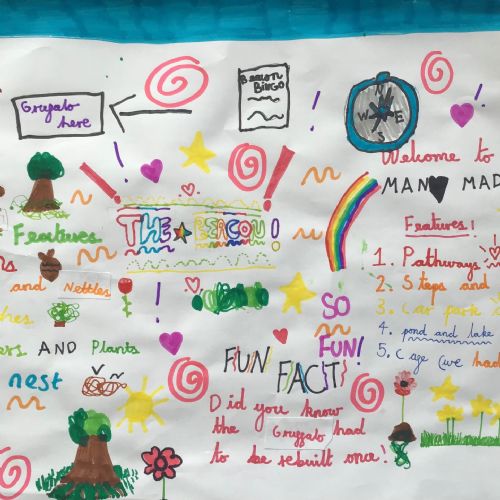 Gruffalo
here
Beacon
BINGO
N
W E
S
Welcome to
MAN MAD
THE BEACON!
Features
and Nettles
ers AND Plants
nest
Features!
1. Pathways
2. Steps and
3. Car park
4. pond and lake
5. Cage (we had
SO
FUN!
FUN FACT!
Did you know
the Gruffalo had
to be rebuilt once!